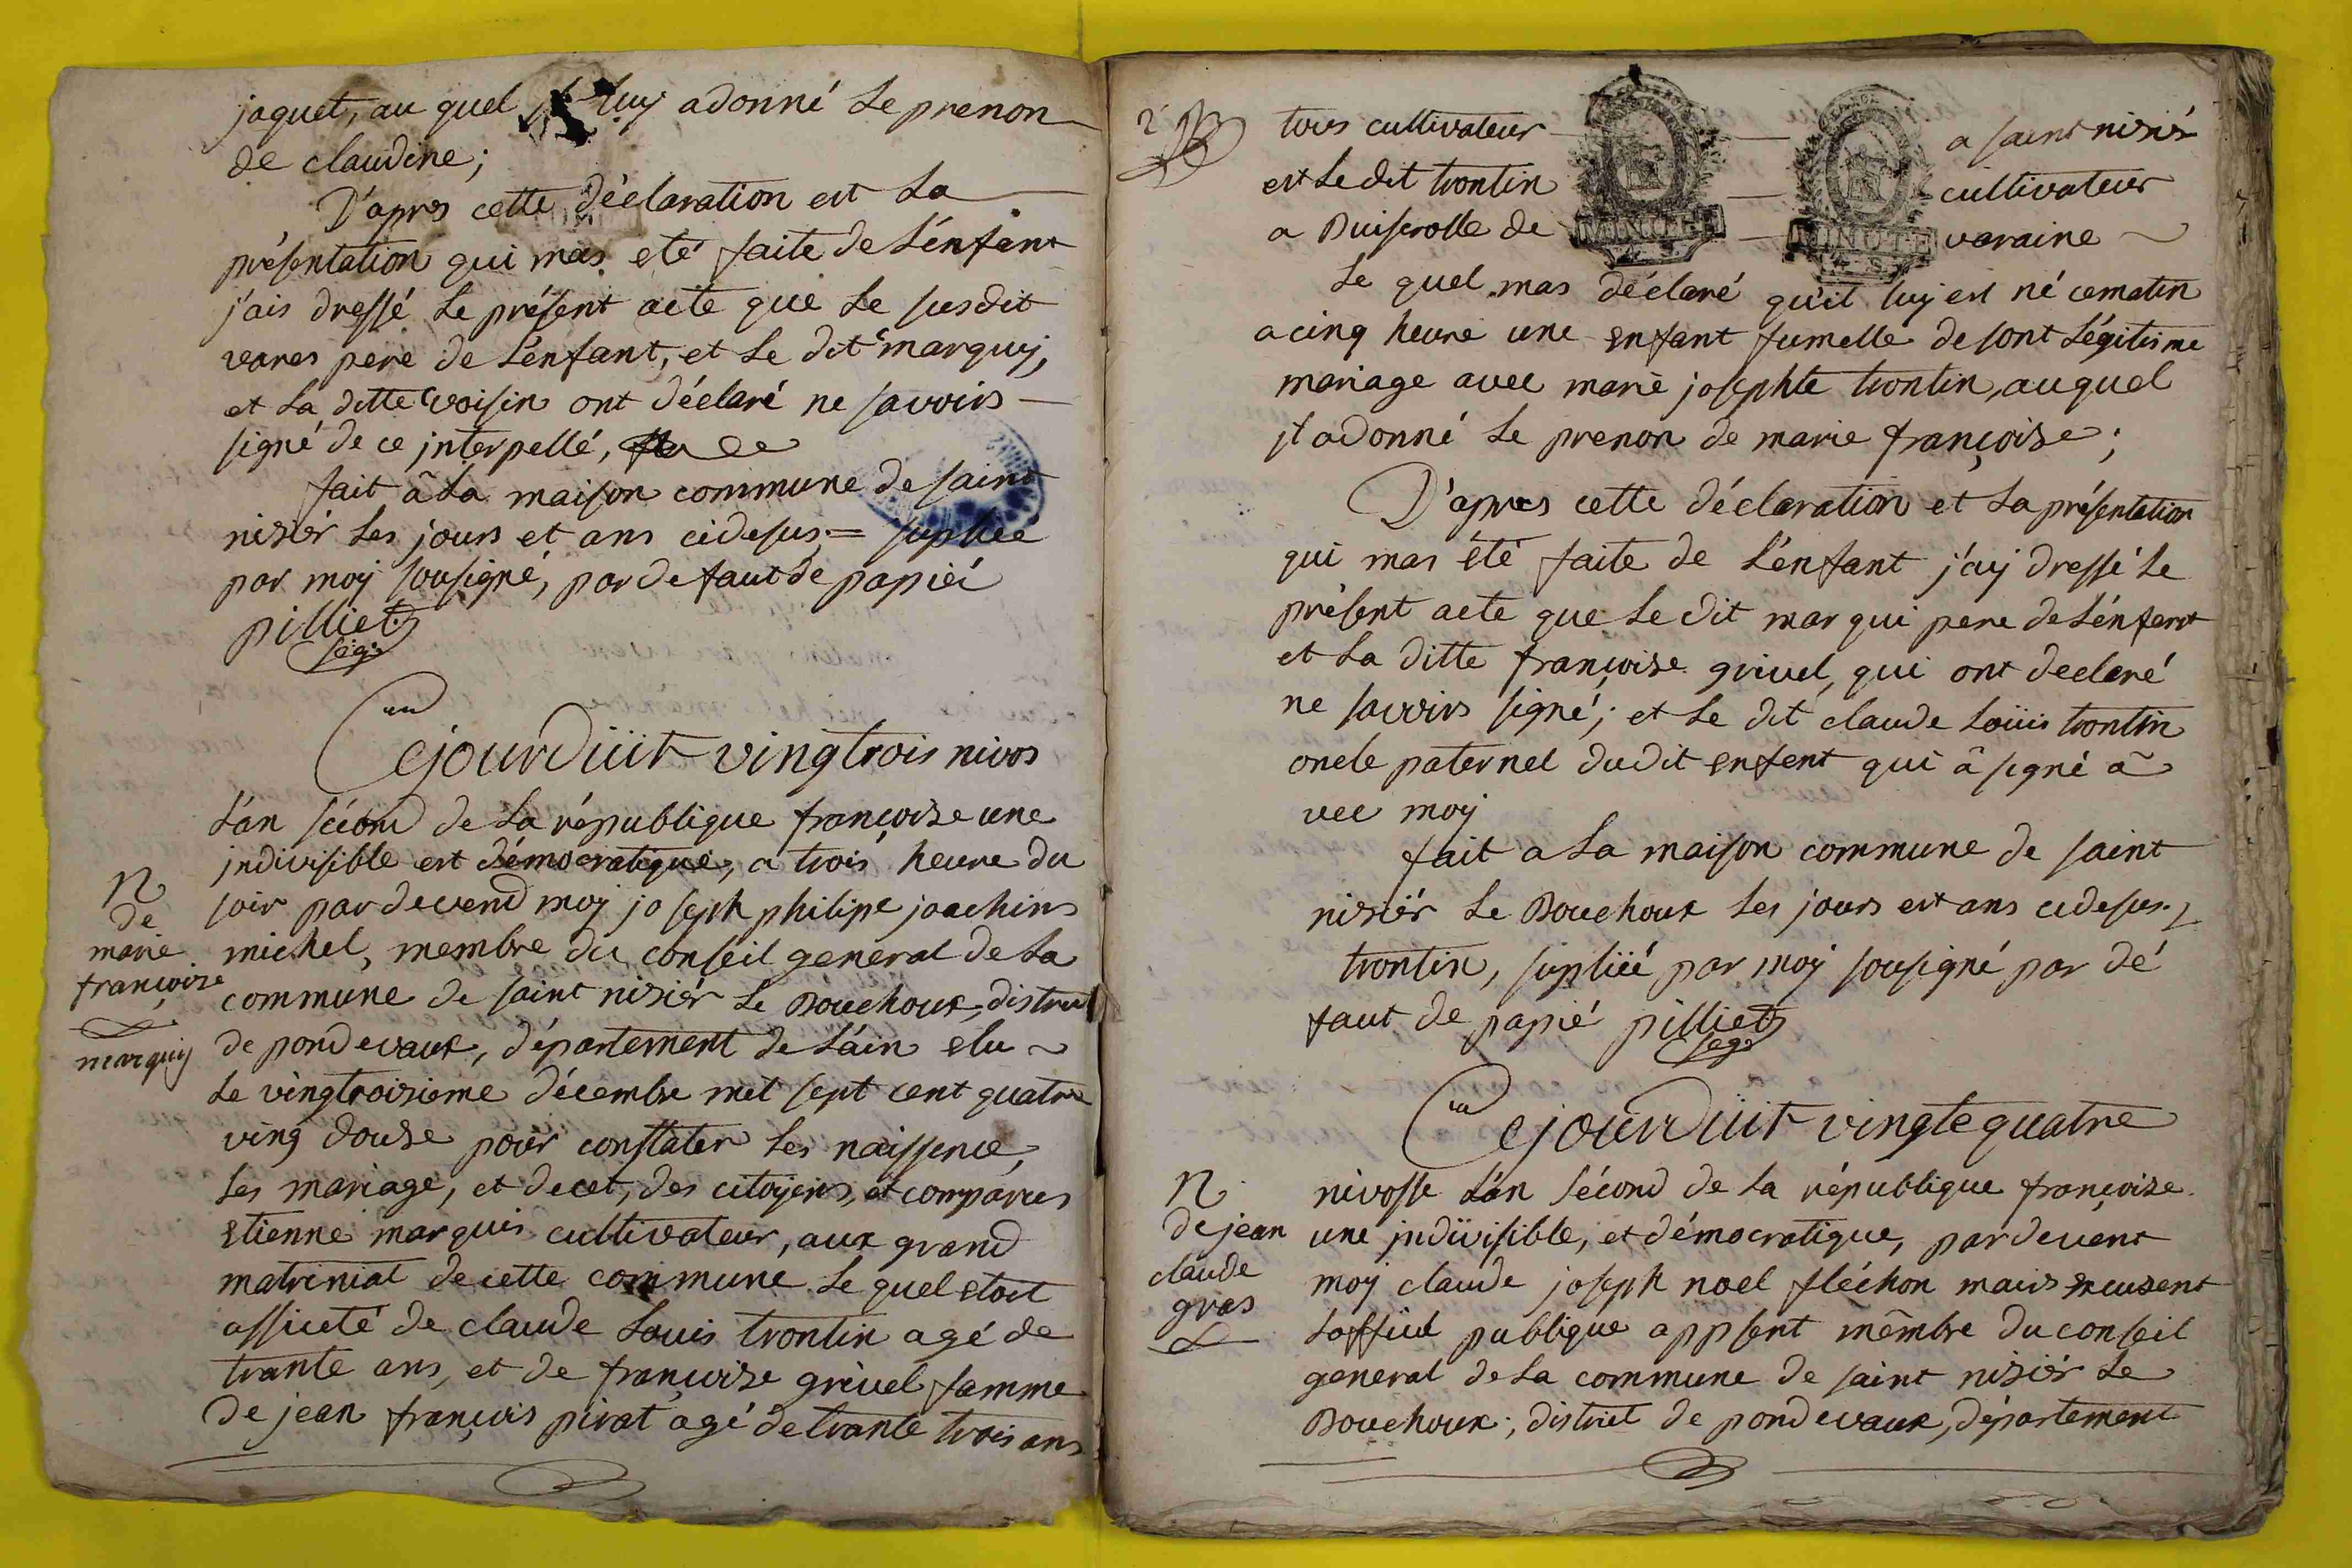 jaquet, au quel luy adonné le prenon
de claudine;
D'apres cette déclaration est la
présentation qui mas eté faite de l'énfant
j'ais dressé le présent acte que le susdit
vares pere de l'enfant, et le dit marquy,
et la ditte voisin ont déclaré ne savoirs
signé de ce jnterpellé,
fait â la maison commune de saint
nisiér les jours et ans cidesus = supliéé
par moy sousigné, par defaut de papiéé
pilliet
seg.
Cejourdüit vingtrois nivos
l'an sécond de la république françoise une
jndivisible est démocratique, a trois heure du
soir pardevend moy joseph philipe joachins
N
de
marie
françoise
marquiy
michel, membre du conseil general de la
commune de saint nisiér le Bouchoux, district
de pondevaux, département de l'áin elu
le vingtroisieme décembre mil sept cent quatre
ving douse pour constater les naissence,
les mariage, et decet, des citoyens, et comparus
Etienne marquis cultivateur, aux grand
matriniat de cette commune le quel etoit
assicté de claude louis trontin agé de
trante ans, et de françoise grivel famme
de jean françois pirat agé de trante trois ans
2
tous cultivateur a saint nisiér
est le dit trontin cultivateur
a Buiserolle de varaine
MINUTE
MINUTE
le quel mas déclaré qu'il luy est né cematin
a cinq heure une enfant fumelle de sont légitisme
mariage avec marie josephte trontin, auquel
jl adonné le prenon de marie françoise;
D'apres cette déclaration et la présentation
qui mas été faite de l'énfant j'ay dressé le
présent acte que le dit marqui pere de l'énfant
et la ditte françoise grivel, qui ont declaré
ne savoirs signé; et le dit claude loüis trontin
oncle paternel dudit enfent qui â signé â
vec moy
fait a la maison commune de saint
nisiér le Bouchoux les jours est ans cidesus.
trontin, supliéé par moy sousigné par dé
faut de papié pilliet
seg.
Cejourdüit vingte quatre
N
de jean
claude
gras
nivosse l'an sécond de la république françoise
une jndivisible, et démocratique, pardevent
moy claude joseph noel fléchon mairs excusent
l'officié publique appsent mêmbre du conseil
general de la commune de saint nisiér le
Bouchoux; district de pondevaux, département